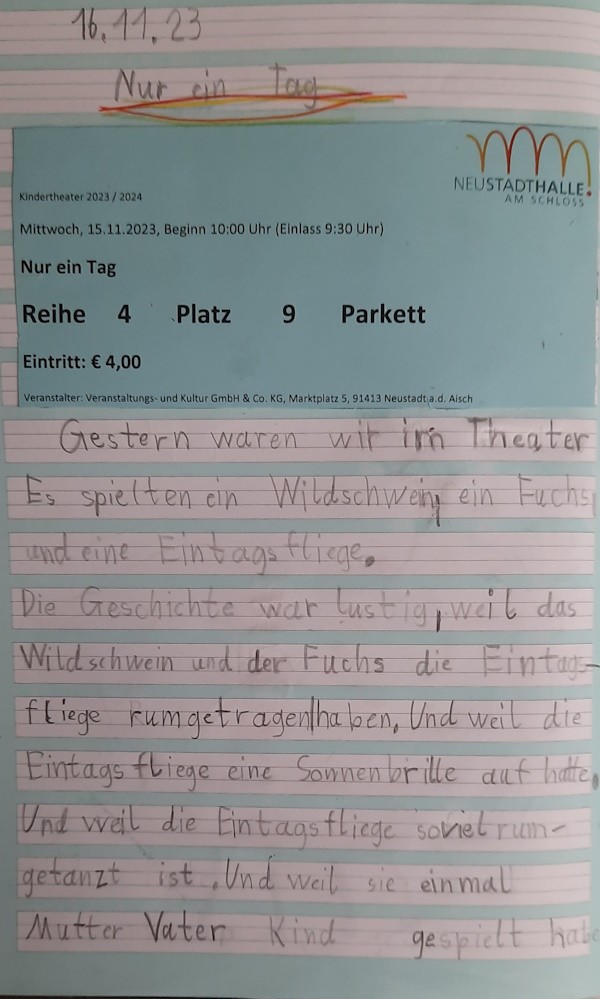 16.11.23
Nur ein Tag
NEUSTADTHALLE
AM SCHLOSS
Kindertheater 2023 / 2024
Mittwoch, 15.11.2023, Beginn 10:00 Uhr (Einlass 9:30 Uhr)
Nur ein Tag
Reihe 4 Platz 9 Parkett
Eintritt: € 4,00
Veranstalter: Veranstaltungs- und Kultur GmbH & Co. KG, Marktplatz 5, 91413 Neustadt a.d. Aisch
Gestern waren wir im Theater
Es spielten ein Wildschwein, ein Fuchs
und eine Eintagsfliege.
Die Geschichte war lustig, weil das
Wildschwein und der Fuchs die Eintags-
fliege rumgetragen haben. Und weil die
Eintagsfliege eine Sonnenbrille auf hatte.
Und weil die Eintagsfliege soviel rum-
getanzt ist. Und weil sie einmal
Mutter Vater Kind gespielt habe